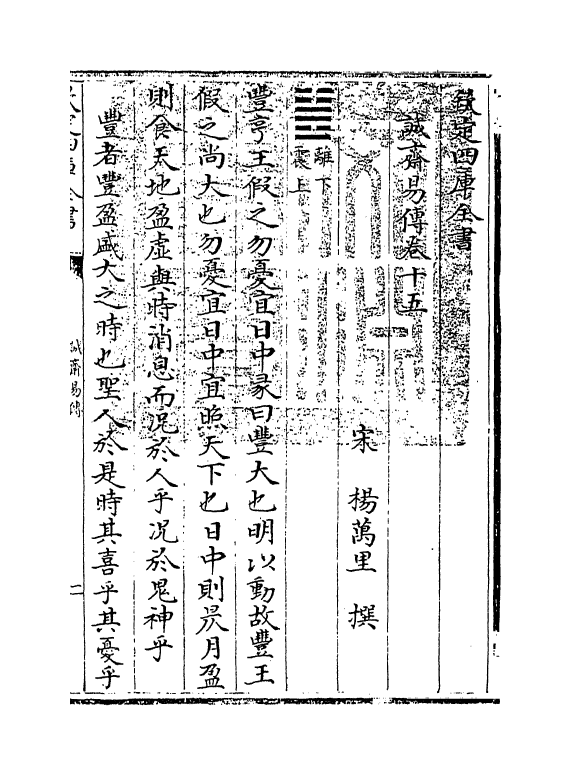 欽定四庫全書
誠齋易傳卷十五
宋 楊萬里 撰
離下
震上
豐亨王假之勿憂宜日中彖曰豐大也明以動故豐王
假之尚大也勿憂宜日中宜照天下也日中則昃月盈
則食天地盈虛與時消息而况於人乎况於鬼神乎
豐者豐盈盛大之時也聖人於是時其喜乎其憂乎
誠齋易傳